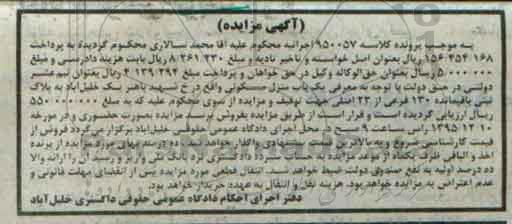 (آگهی مزایده)
به موجب پرونده کلاسه ۹۵۰۰۵۷ اجرائیه محکوم علیه آقا محمد سالاری محکوم گردیده به پرداخت
۱۵۶/۳۵۴/۱۶۸ ریال بعنوان اصل خواسته و تاخیر تادیه و مبلغ ۸/۲۶۱/۲۳۰ ریال بابت هزینه دادرسی و مبلغ
۵/۰۰۰/۰۰۰ ریال بعنوان حق الوکاله وکیل در حق خواهان و پرداخت مبلغ ۴/۱۳۹/۲۹۴ ریال بعنوان نیم عشر
دولتی در حق دولت با توجه به معرفی یک باب منزل مسکونی واقع در خ شهید باهنر یک خلیل آباد به پلاک
ثبتی باقیمانده ۱۳۰ فرعی از ۲۳ اصلی جهت توقیف و مزایده از سوی محکوم علیه که به مبلغ ۵۵۰/۰۰۰/۰۰۰
ریال ارزیابی گردیده است و قرار است از طریق مزایده بفروش برسد مزایده بصورت حضوری و در مورخه
۱۳۹۵/۱۲/۱۰ راس ساعت ۹ صبح در محل اجرای دادگاه عمومی حقوقی خلیل آباد برگزار می گردد فروش از
قیمت کارشناسی شروع و به بالاترین قیمت پیشنهادی واگذار خواهد شد. ده درصد بهای مورد مزایده از برنده
اخذ و الباقی ظرف یکماه از موعد مزایده به حساب سپرده دادگستری نزد بانک ملی واریز و رسید آن را ارائه والا
ده درصد اولیه به نفع صندوق دولت ضبط خواهد شد. انتقال قطعی مورد مزایده پس از انقضای مهلت قانونی و
عدم اعتراض به مزایده خواهد بود. هزینه نقل و انتقال به عهده خریدار خواهد بود.
دفتر اجرای احکام دادگاه عمومی حقوقی دادگستری خلیل آباد